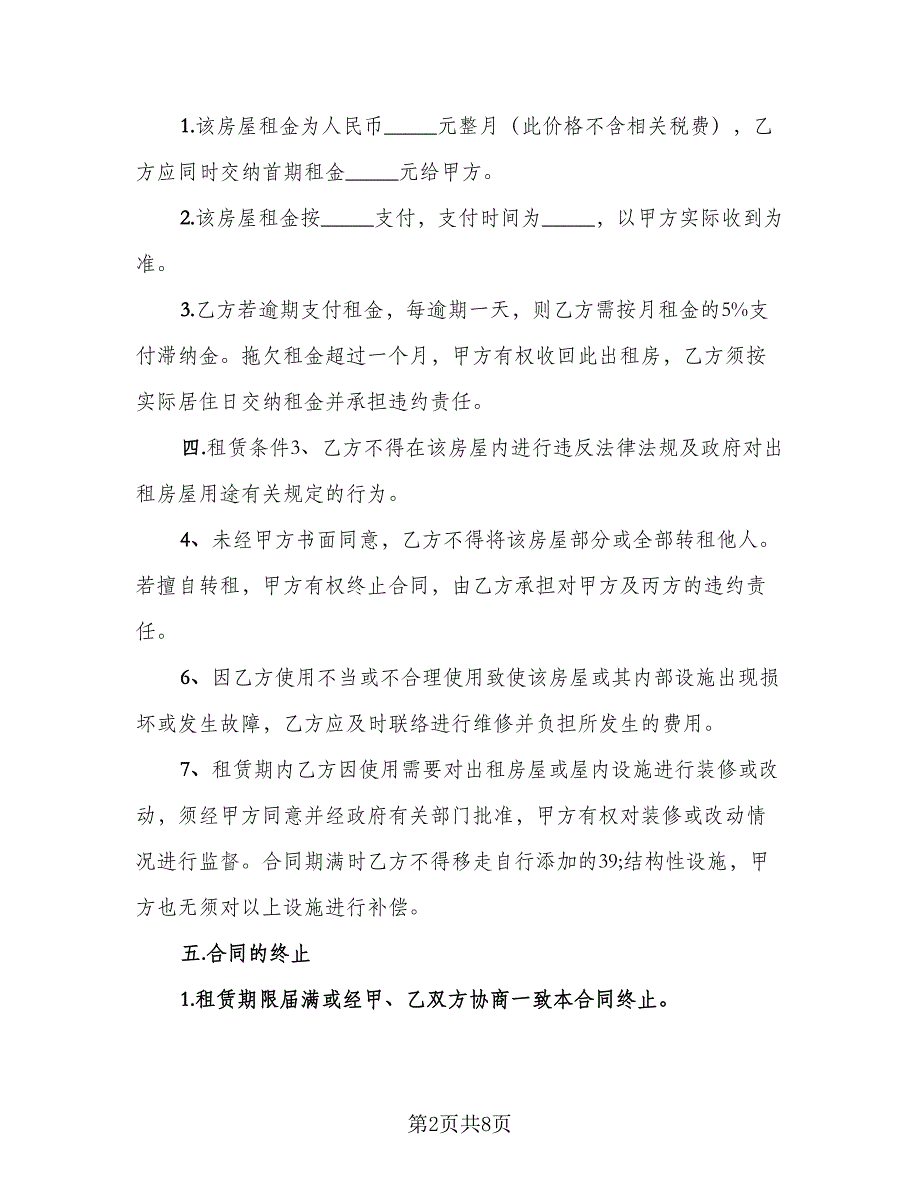 1.该房屋租金为人民币_____元整月（此价格不含相关税费），乙
方应同时交纳首期租金_____元给甲方。
2.该房屋租金按_____支付，支付时间为_____，以甲方实际收到为
准。
3.乙方若逾期支付租金，每逾期一天，则乙方需按月租金的5%支
付滞纳金。拖欠租金超过一个月，甲方有权收回此出租房，乙方须按
实际居住日交纳租金并承担违约责任。
四.租赁条件3、乙方不得在该房屋内进行违反法律法规及政府对出
租房屋用途有关规定的行为。
4、未经甲方书面同意，乙方不得将该房屋部分或全部转租他人。
若擅自转租，甲方有权终止合同，由乙方承担对甲方及丙方的违约责
任。
6、因乙方使用不当或不合理使用致使该房屋或其内部设施出现损
坏或发生故障，乙方应及时联络进行维修并负担所发生的费用。
7、租赁期内乙方因使用需要对出租房屋或屋内设施进行装修或改
动，须经甲方同意并经政府有关部门批准，甲方有权对装修或改动情
况进行监督。合同期满时乙方不得移走自行添加的39;结构性设施，甲
方也无须对以上设施进行补偿。
五.合同的终止
1.租赁期限届满或经甲、乙双方协商一致本合同终止。
第2页共8页